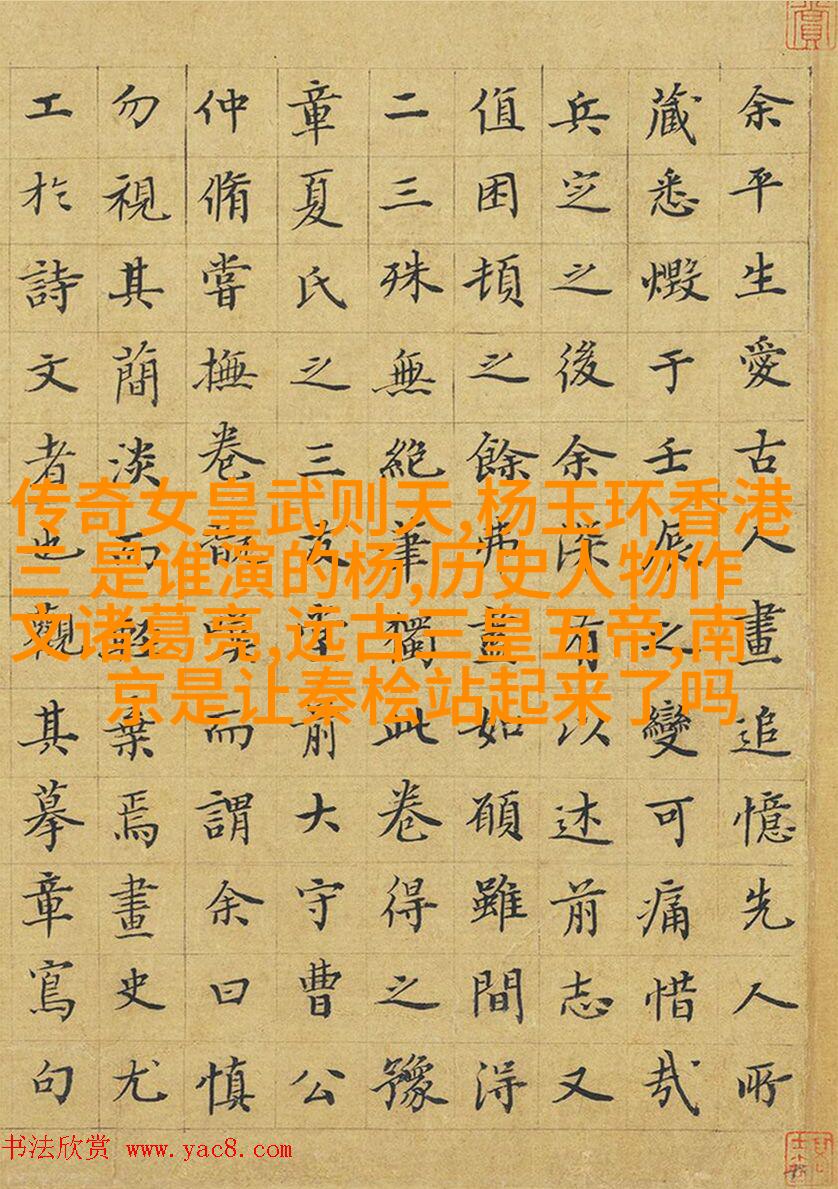 余平生愛古人畫追憶先人所
藏悉燬于壬辰之變可痛惜哉
兵定之後余深有以述前志又
值困頓之餘弗盡如願雖間得
二三殊無絕筆獨此卷得之豫
章夏氏之三友堂前大守曹公
仲脩嘗撫卷而謂余曰慎
勿視其簡淡而輕棄焉畫史尤
工於詩文者也觀其摹章寫句
传奇女皇武则天,杨玉环香港
三 是谁演的杨,历史人物作
文诸葛亮,远古三皇五帝,南
京是让秦桧站起来了吗
书法欣赏 www.yac8.com